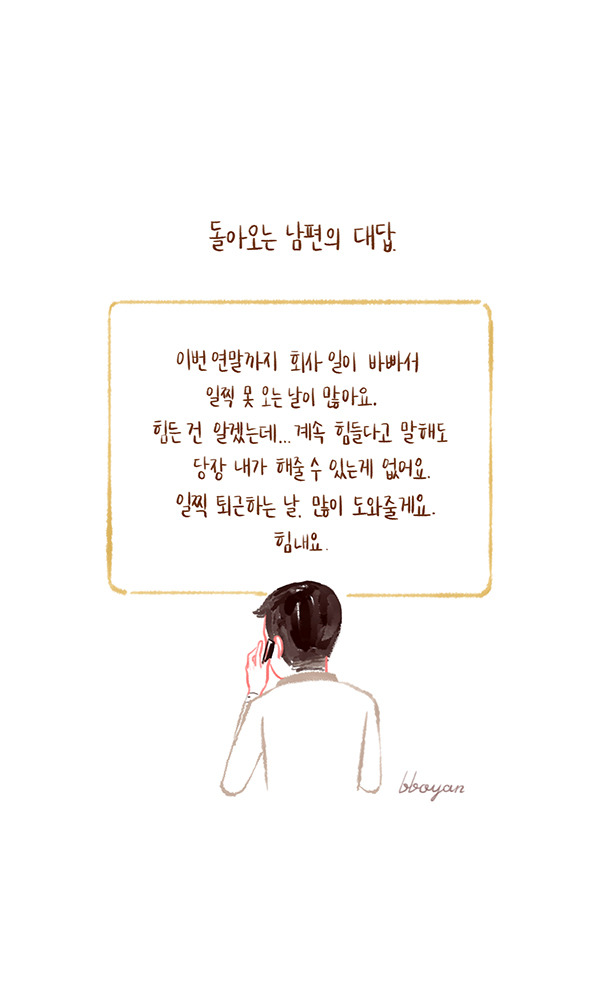 돌아오는 남편의 대답.
이번 연말까지 회사 일이 바빠서
일찍 못 오는 날이 많아요.
힘든 건 알겠는데... 계속 힘들다고 말해도
당장 내가 해줄 수 있는게 없어요.
일찍 퇴근하는 날. 많이 도와줄게요.
힘내요.
bboyan